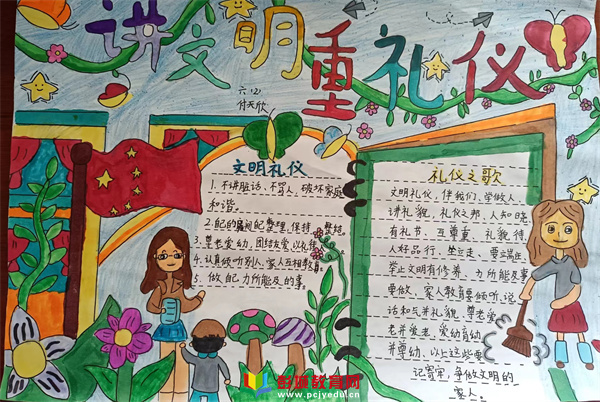 讲文明重礼仪
六.(2)
付天欣
文明礼仪
1.不讲脏话、不骂人,破坏家庭
和谐。
2.自己的房间自己整理,保持整结。
3.尊老爱幼,团结友爱,以礼待
4.认真倾听别人、家人互相教育。
5.做自己力所能及的事。
礼仪之歌
文明礼仪,伴我们,学做人,
讲礼貌,礼仪之邦,人知晓,
有礼节,互尊重,礼貌待
人好品行,坐兰走,要端庄,
举止文明有修养,力所能及事
要做,家人教育要倾听,说
话和气并礼貌,尊老爱
老并爱老,爱幼育幼
并尊幼,以上这些要
记需牢,争做文明的
家人。
彭捷教育网
www.pcjyedu.cn